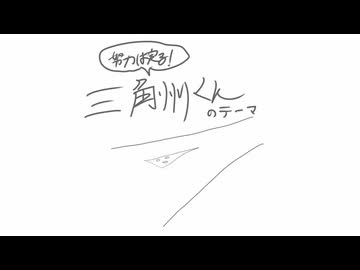 努力は実る!
三角州くん
のテーマ